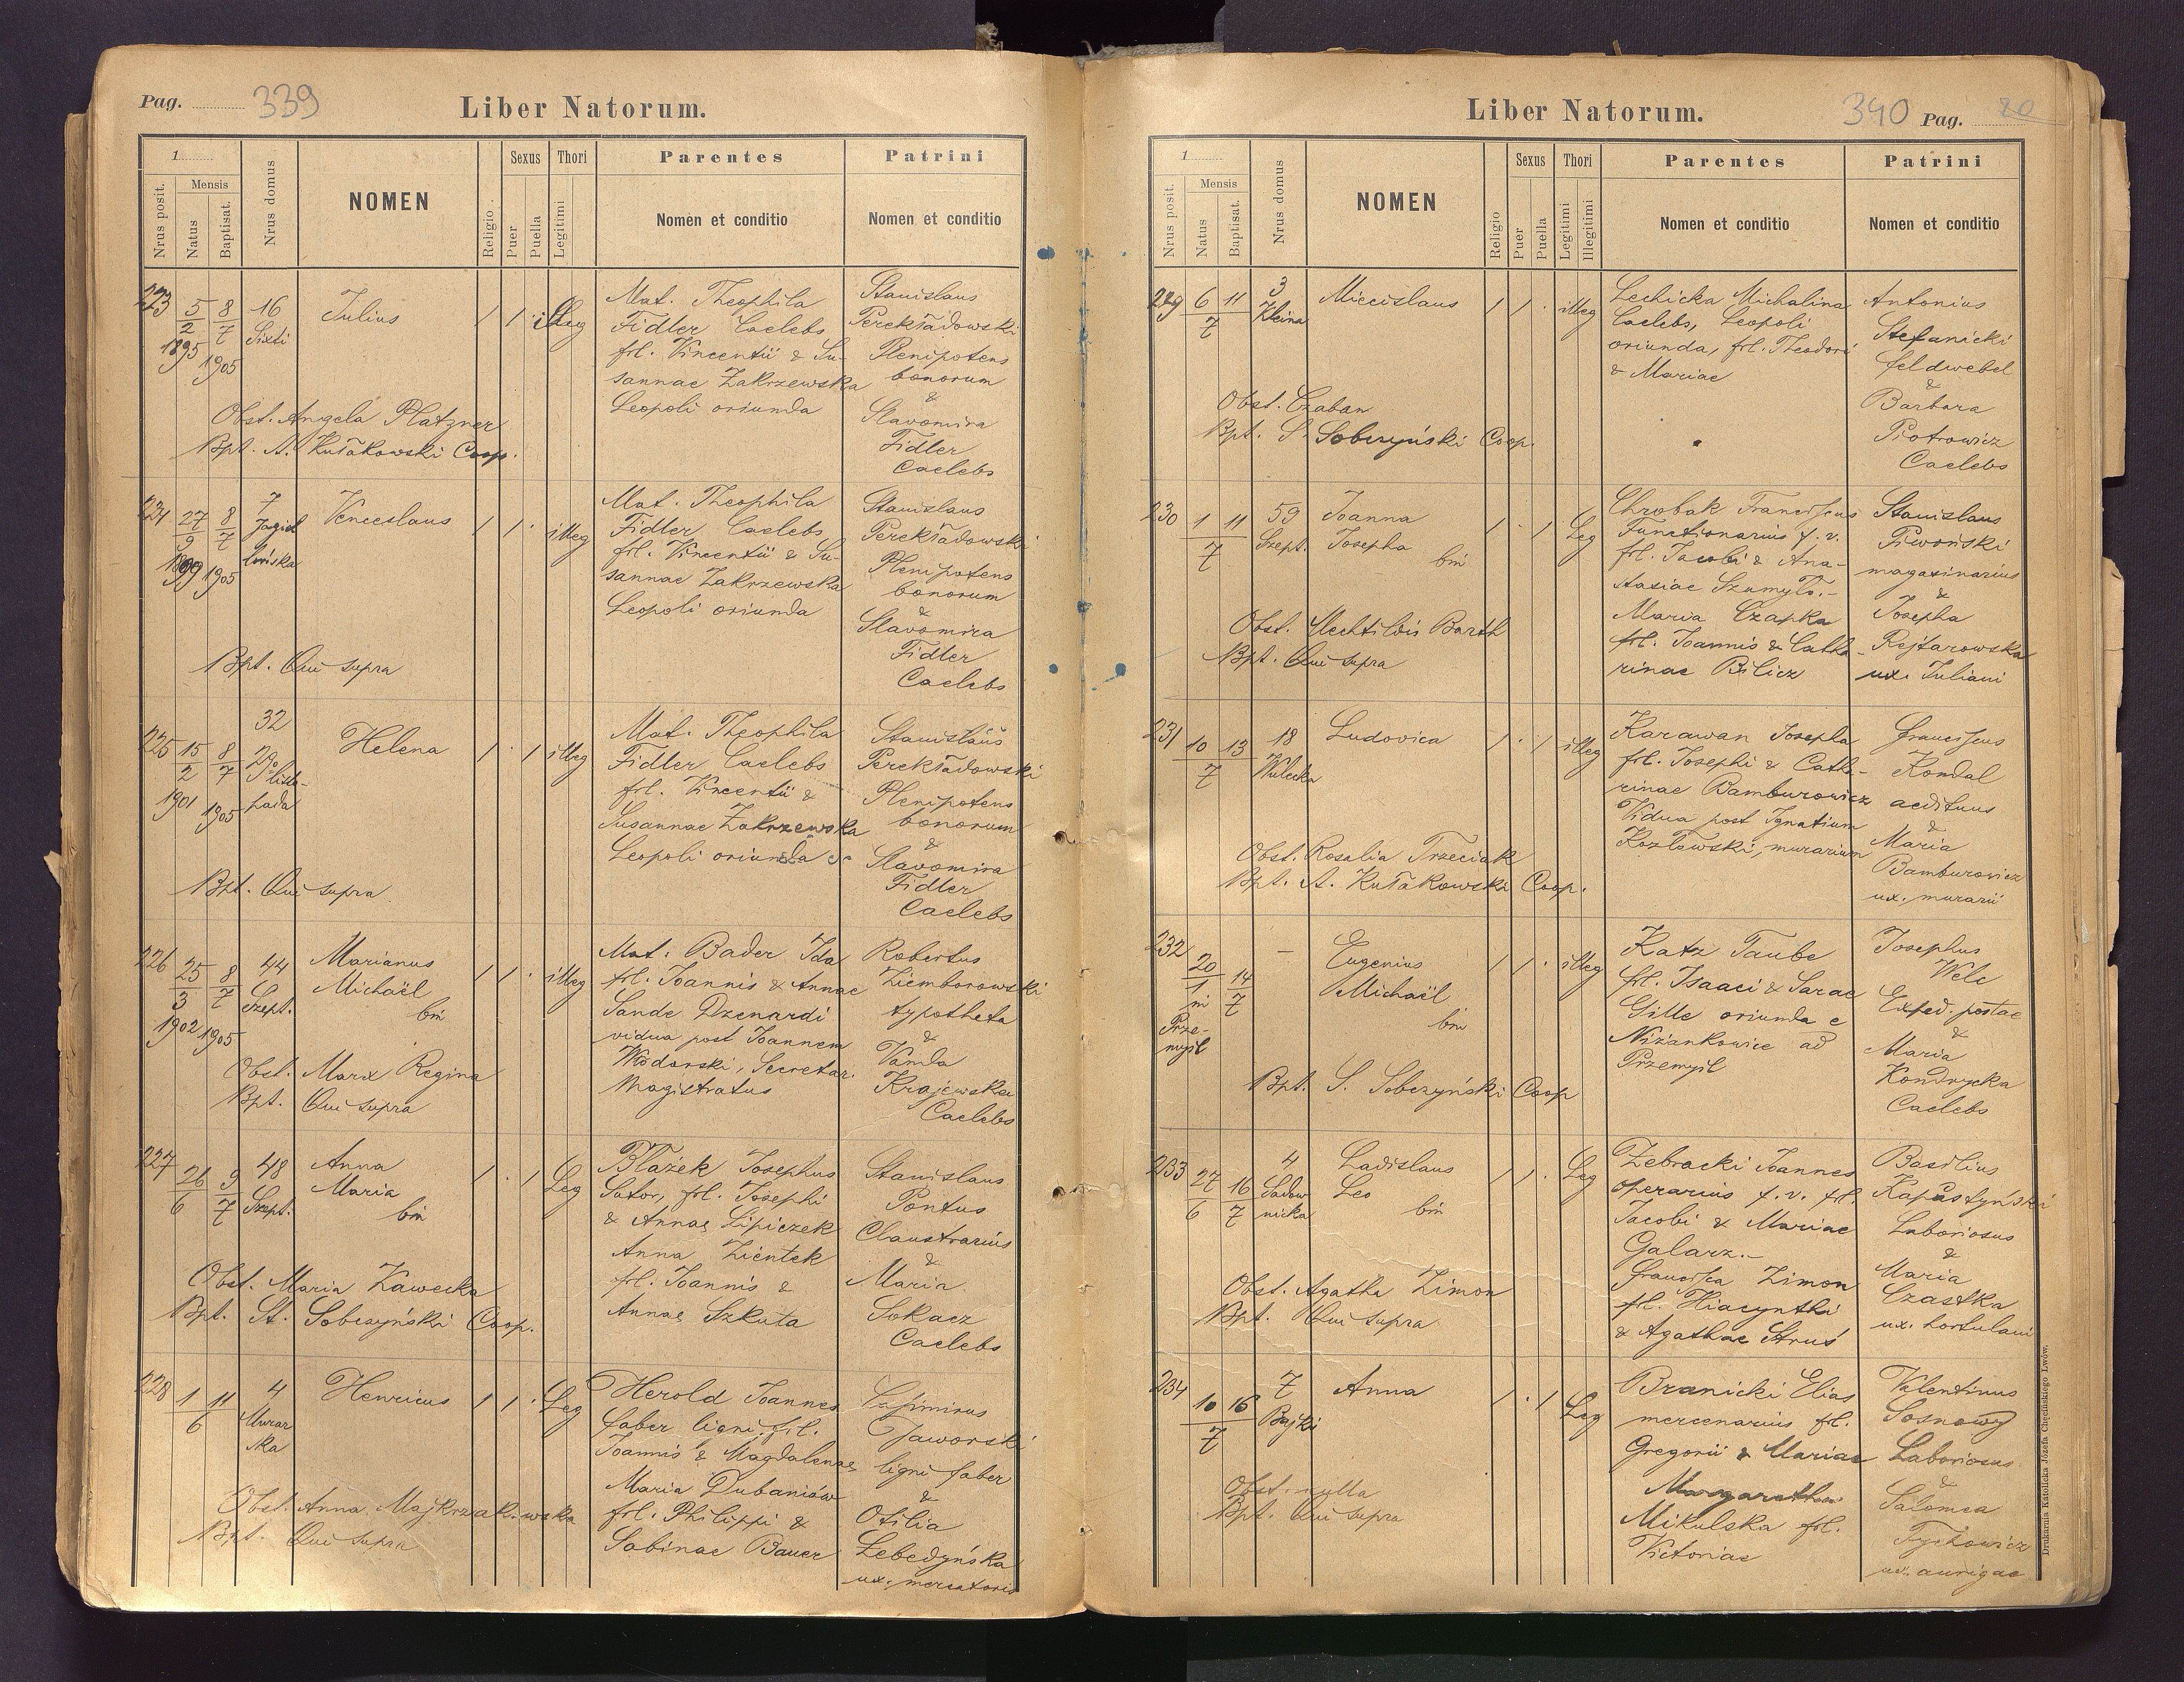 Pag. 339
Liber Natorum.
1
Nrus posit.
Mensis
Natus
Baptisat.
Nrus domus
NOMEN
Religio
Sexus
Puer
Puella
Thori
Legitimi
Parentes
Nomen et conditio
Patrini
Nomen et conditio
223
5/2 1895
8/7 1905
16
Sixti
Julius
1 1 · illeg
Mat. Theophila
Fidler Caelebs
fil. Vincentii & Su-
sannae Zakrzewska
Leopoli oriunda
Stanislaus
Perekładowski
Plenipotens
bonorum
&
Slavomira
Fidler
Caelebs
Obst. Angela Platzner
Bpt. A. Kułakowski Coop.
224
27/9 1899
8/7 1905
7
Jagiel
lońska
Venceslaus
1 1 · illeg
Mat. Theophila
Fidler Caelebs
fil. Vincentii & Su-
sannae Zakrzewska
Leopoli oriunda
Stanislaus
Perekładowski
Plenipotens
bonorum
&
Slavomira
Fidler
Caelebs
Bpt. Qui supra
225
15/2 1901
8/7 1905
32
29
Listo-
pada
Helena
1 · 1 illeg
Mat. Theophila
Fidler Caelebs
fil. Vincentii &
Susannae Zakrzewska
Leopoli oriunda
Stanislaus
Perekładowski
Plenipotens
bonorum
&
Slavomira
Fidler
Caelebs
Bpt. Qui supra
226
25/3 1902
8/7 1905
44
Szept.
Marianus
Michaël
bin
1 1 · illeg
Mat. Bader Ida
fil. Joannis & Annae
Sande Dzenardi
vidua post Joannem
Wodarski, Secretar.
Magistratus
Robertus
Ziemborowski
typotheta
&
Vanda
Krajewska
Caelebs
Obst. Marx Regina
Bpt. Qui supra
227
26/6
9/7
48
Szept.
Anna
Maria
bin
1 · 1 Leg
Błażek Josephus
Sutor, fil. Josephi
& Annae Lipiczek
Anna Zientek
fil. Joannis &
Annae Szkuta
Stanislaus
Pontus
Claustrarius
&
Maria
Sokacz
Caelebs
Obst. Maria Kawecka
Bpt. St. Sobczyński Coop.
228
1 11
6
4
Murar
ska
Henricus
1 1 · Leg
Herold Joannes
faber ligni, fil.
Joannis & Magdalenae
Maria Dubaniów
fil. Philippi &
Sabinae Bauer
Casimirus
Jaworski
ligni faber
&
Otilia
Lebedyńska
ux. mercatoris
Obst. Anna Majkrzakiewska
Bpt. Qui supra
Liber Natorum.
340 Pag. 20
1
Nrus posit.
Mensis
Natus
Baptisat.
Nrus domus
NOMEN
Religio
Sexus
Puer
Puella
Thori
Legitimi
Illegitimi
Parentes
Nomen et conditio
Patrini
Nomen et conditio
229
6 11
7
3
Kleina
Miecislaus
1 1 · illeg
Lechicka Michalina
Caelebs, Leopoli
oriunda, fil. Theodori
& Mariae
Antonius
Stefanicki
feldwebel
&
Barbara
Piotrowicz
Caelebs
Obst. Czaban
Bpt. S. Sobczyński Coop.
230
1 11
7
59
Szept.
Joanna
Josepha
bin
1 · 1 Leg
Chrobak Franciscus
Functionarius f. v.
fil. Jacobi & Ana-
stasiae Szumyło.-
Maria Czapka
fil. Joannis & Catha-
rinae Bilicz
Stanislaus
Piwoński
magazinarius
&
Josepha
Rejtarowska
ux. Juliani
Obst. Mechtildis Barth
Bpt. Qui supra
231
10 13
7
18
Wulecka
Ludovica
1 · 1 illeg
Karawan Josepha
fil. Josephi & Catha-
rinae Bamburowicz
Vidua post Ignatium
Kozłowski, murarium
Franciscus
Komdal
aedituus
&
Maria
Bamburowicz
ux. murarii
Obst. Rosalia Trzeciak
Bpt. A. Kułakowski Coop.
232
20/1
in
Prze-
myśl
14/7
—
Eugenius
Michaël
bin
1 1 · illeg
Katz Taube
fil. Isaaci & Sarae
Gille oriunda e
Niżankowice ad
Przemyśl
Josephus
Welc
Exped. postae
&
Maria
Kondrycka
Caelebs
Bpt. S. Sobczyński Coop
233
27/6
16/7
4
Sadow
nicka
Ladislaus
Leo
bin
1 1 · Leg
Żebracki Joannes
operarius f. v. fil.
Jacobi & Mariae
Galarz.-
Francisca Zimon
fil. Hiacynthi
& Agathae Struś
Basilius
Kapuśtyński
Laboriosus
&
Maria
Czastka
ux. hortulani
Obst. Agatha Zimon
Bpt. Qui supra
234
10 16
7
7
Bajki
Anna
1 · 1 Leg
Branicki Elias
mercenarius fil.
Gregorii & Mariae
Margaretha
Mikulska fil.
Victoriae
Valentinus
Sosnowy
Laboriosus
&
Salomea
Tychowicz
ux. aurigae
Obst. nulla
Bpt. Qui supra
Drukarnia Katolicka Józefa Chęcińskiego Lwów.